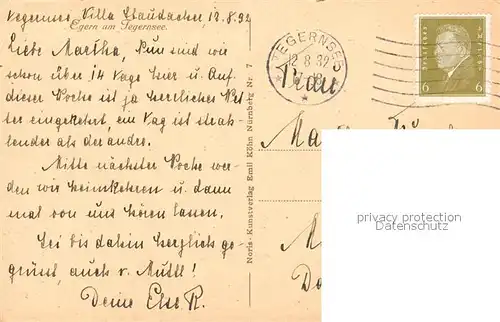 Tegernsee, Villa Staudacher 12.8.32
Egern am Tegernsee.
Liebe Martha, Nun sind wir
schon über 14 Tage hier u. Auf
dieser Woche ist ja herrliches Wet
ter eingekehrt, ein Tag ist strah-
lender als der andre.
Mitte nächster Woche wer-
den wir heimkehren u. dann
mal von uns hören lassen.
Sei bis dahin herzlich ge
grüsst, auch v. Mutti!
Deine Else R.
Noris-Kunstverlag Emil Köhn Nürnberg Nr. 7
TEGERNSEE
12.8.32
Frau
6 6
privacy protection